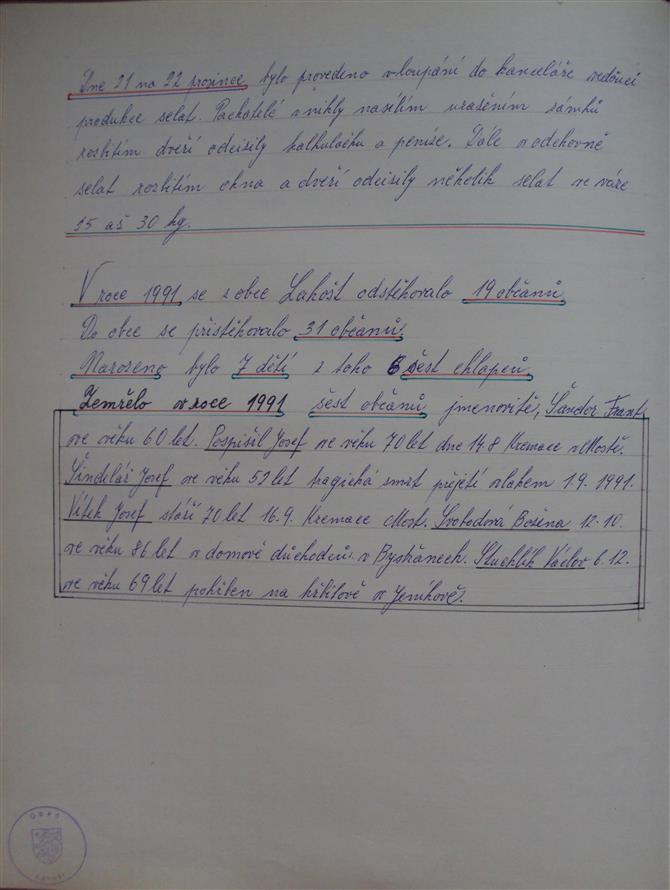 Dne 21 na 22 prosince bylo provedeno vloupání do kanceláře vedoucí
produkce selat. Pachatelé vnikly nasilím uražením zámků
rozbitím dveří odcizily kalkulačku a peníze. Dále v odchovně
selat rozbitím okna a dveří odcizily několik selat ve váze
15 aš 30 kg.
V roce 1991 se z obce Lahošt odstěhovalo 19 občanů
Do obce se přistěhovalo 31 občanů.
Narozeno bylo 7 dětí z toho 6 šest chlapců
Zemřelo v roce 1991 šest občanů jmenovitě, Šandor Frant.
ve věku 60 let. Pospíšil Josef ve věku 70 let dne 14.8 Kremace v Mostě.
Šindelář Josef ve věku 52 let tragická smrt přejetí vlakem 1.9. 1991.
Vítek Josef stáří 70 let 16.9. Kremace Most. Svobodová Božena 12.10.
ve věku 86 let v domově důchodců v Bystřanech. Stuchlík Václav 6.12.
ve věku 69 let pohřben na hřbitově v Jeníkově.
OBEC
LAHOŠŤ